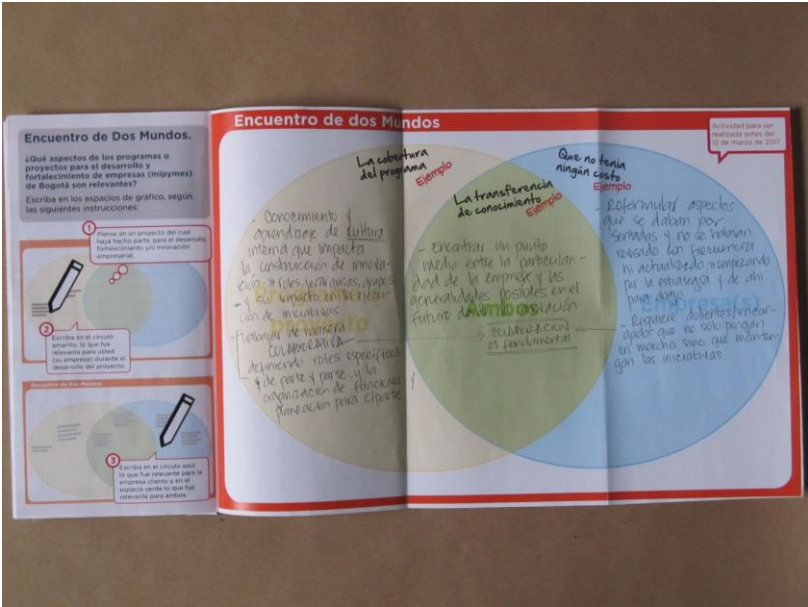 Encuentro de Dos Mundos.
¿Qué aspectos de los programas o
proyectos para el desarrollo y
fortalecimiento de empresas (mipymes)
de Bogotá son relevantes?
Escriba en los espacios de gráfico, según
las siguientes instrucciones:
1
Piense en un proyecto del cual
haya hecho parte, para el desarrollo,
fortalecimiento y/o innovación
empresarial.
2
Escriba en el círculo
amarillo, lo que fue
relevante para usted
(su empresa) durante el
desarrollo del proyecto.
Encuentro de Dos Mundos
3
Escriba en el círculo azul,
lo que fue relevante para la
empresa cliente y en el
espacio verde lo que fue
relevante para ambos.
Encuentro de dos Mundos
Actividad para ser
realizada antes del
12 de marzo de 2017
La cobertura
del programa
Ejemplo
- Conocimiento y
aprendizaje de cultura
interna que impacta
la construcción de innova-
ción
y su impacto en la
ción de iniciativas
- Trabajar de manera
COLABORATIVA
definiendo roles específicos
de parte y parte y la
organización de funciones y
planeación para el
proyecto
La transferencia
de conocimiento
Ejemplo
- Encontrar un punto
medio entre la particulari-
dad de la empresa y las
generalidades posibles en el
futuro de la
Ambos
COLABORACIÓN
es fundamental
Que no tenía
ningún costo
Ejemplo
- Reformular aspectos
que se daban por
sentadas y no se habían
revisado con frecuencia
ni actualizado, empezando
por la estrategia y de ahí
para abajo
Empresa(s)
- Requiere dolientes/encar-
gados que no solo pongan
en marcha sino que manten-
gan las iniciativas